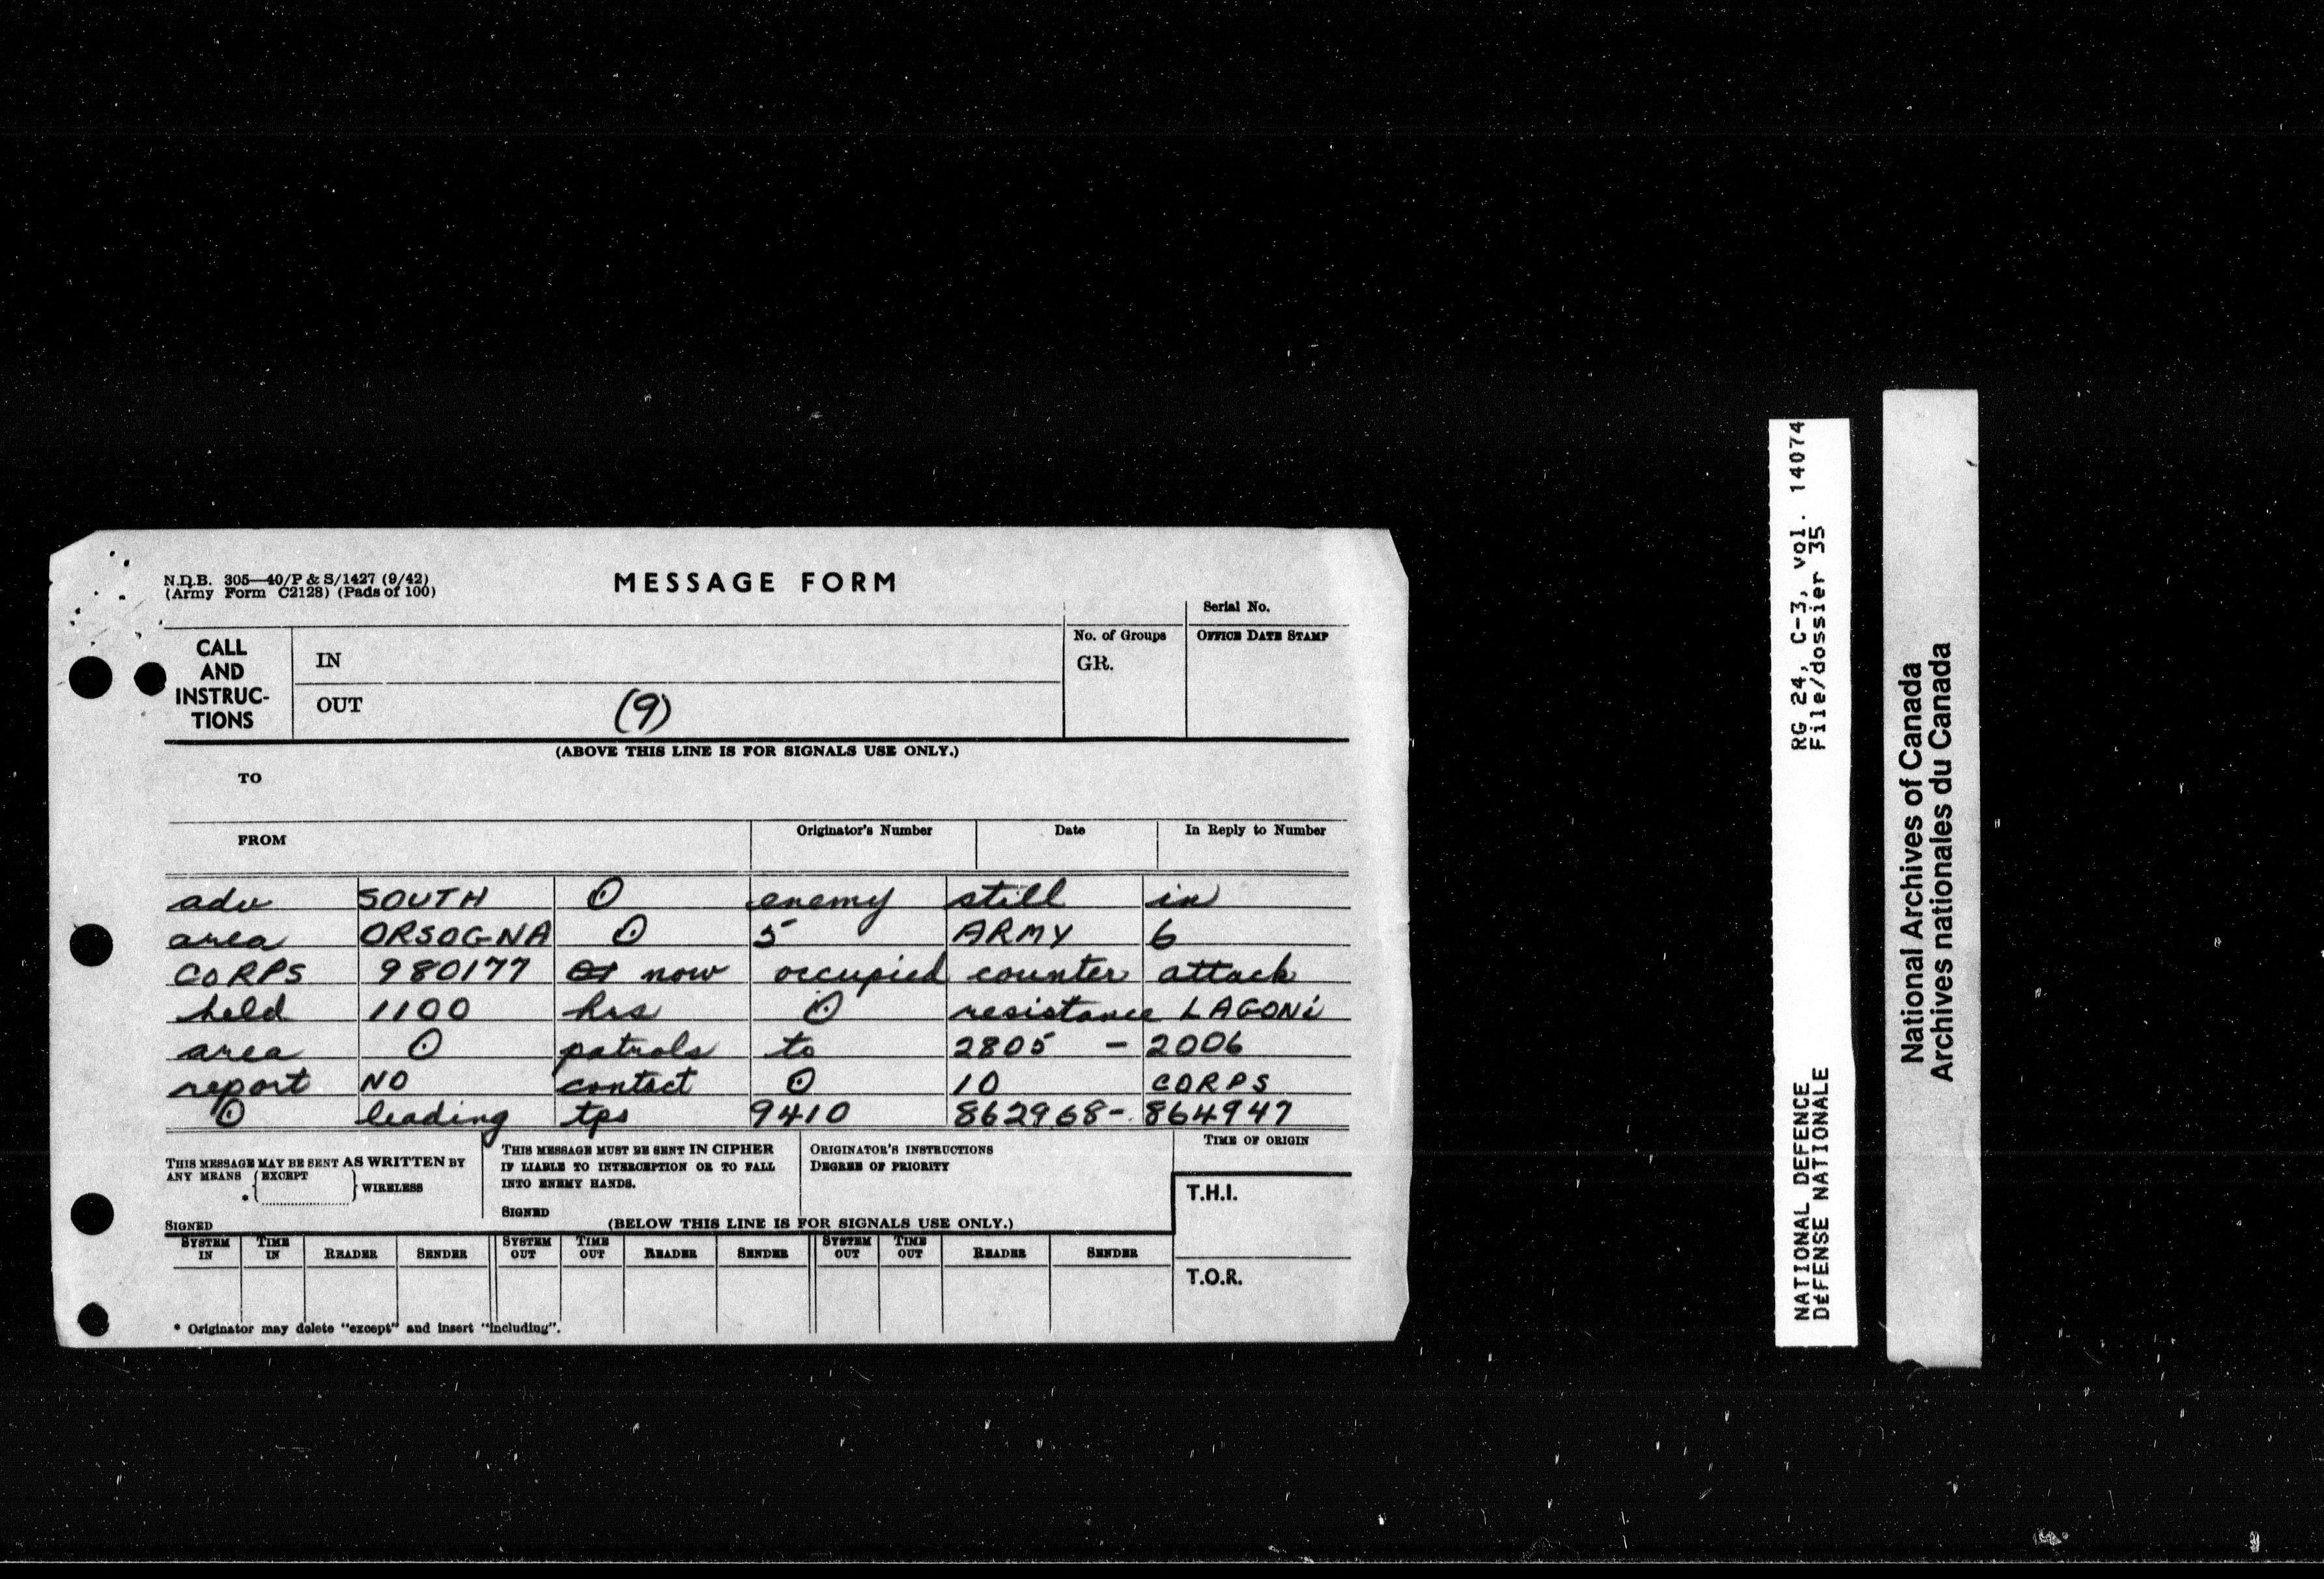 N.D.B. 305—40/P & S/1427 (9/42)
(Army Form C2128) (Pads of 100)
MESSAGE FORM
Serial No.
CALL AND INSTRUC-TIONS
IN
OUT
(9)
No. of Groups
GR.
OFFICE DATE STAMP
(ABOVE THIS LINE IS FOR SIGNALS USE ONLY.)
TO
FROM
Originator's Number
Date
In Reply to Number
adv SOUTH ⊙ enemy still in
area ORSOGNA ⊙ 5 ARMY 6
CORPS 980177 now occupied counter attack
held 1100 hrs ⊙ resistance LAGONi
area ⊙ patrols to 2805 - 2006
report NO contact ⊙ 10 CORPS
⊙ leading tps 9410 862968- 864947
THIS MESSAGE MAY BE SENT AS WRITTEN BY
ANY MEANS (EXCEPT
* WIRELESS
SIGNED
THIS MESSAGE MUST BE SENT IN CIPHER
IF LIABLE TO INTERCEPTION OR TO FALL
INTO ENEMY HANDS.
SIGNED
ORIGINATOR'S INSTRUCTIONS
DEGREE OF PRIORITY
TIME OF ORIGIN
T.H.I.
(BELOW THIS LINE IS FOR SIGNALS USE ONLY.)
SYSTEM IN TIME IN READER SENDER SYSTEM OUT TIME OUT READER SENDER SYSTEM OUT TIME OUT READER SENDER
T.O.R.
* Originator may delete "except" and insert "including".
NATIONAL DEFENCE RG 24, C-3, vol. 14074
DÉFENSE NATIONALE File/dossier 35
National Archives of Canada
Archives nationales du Canada